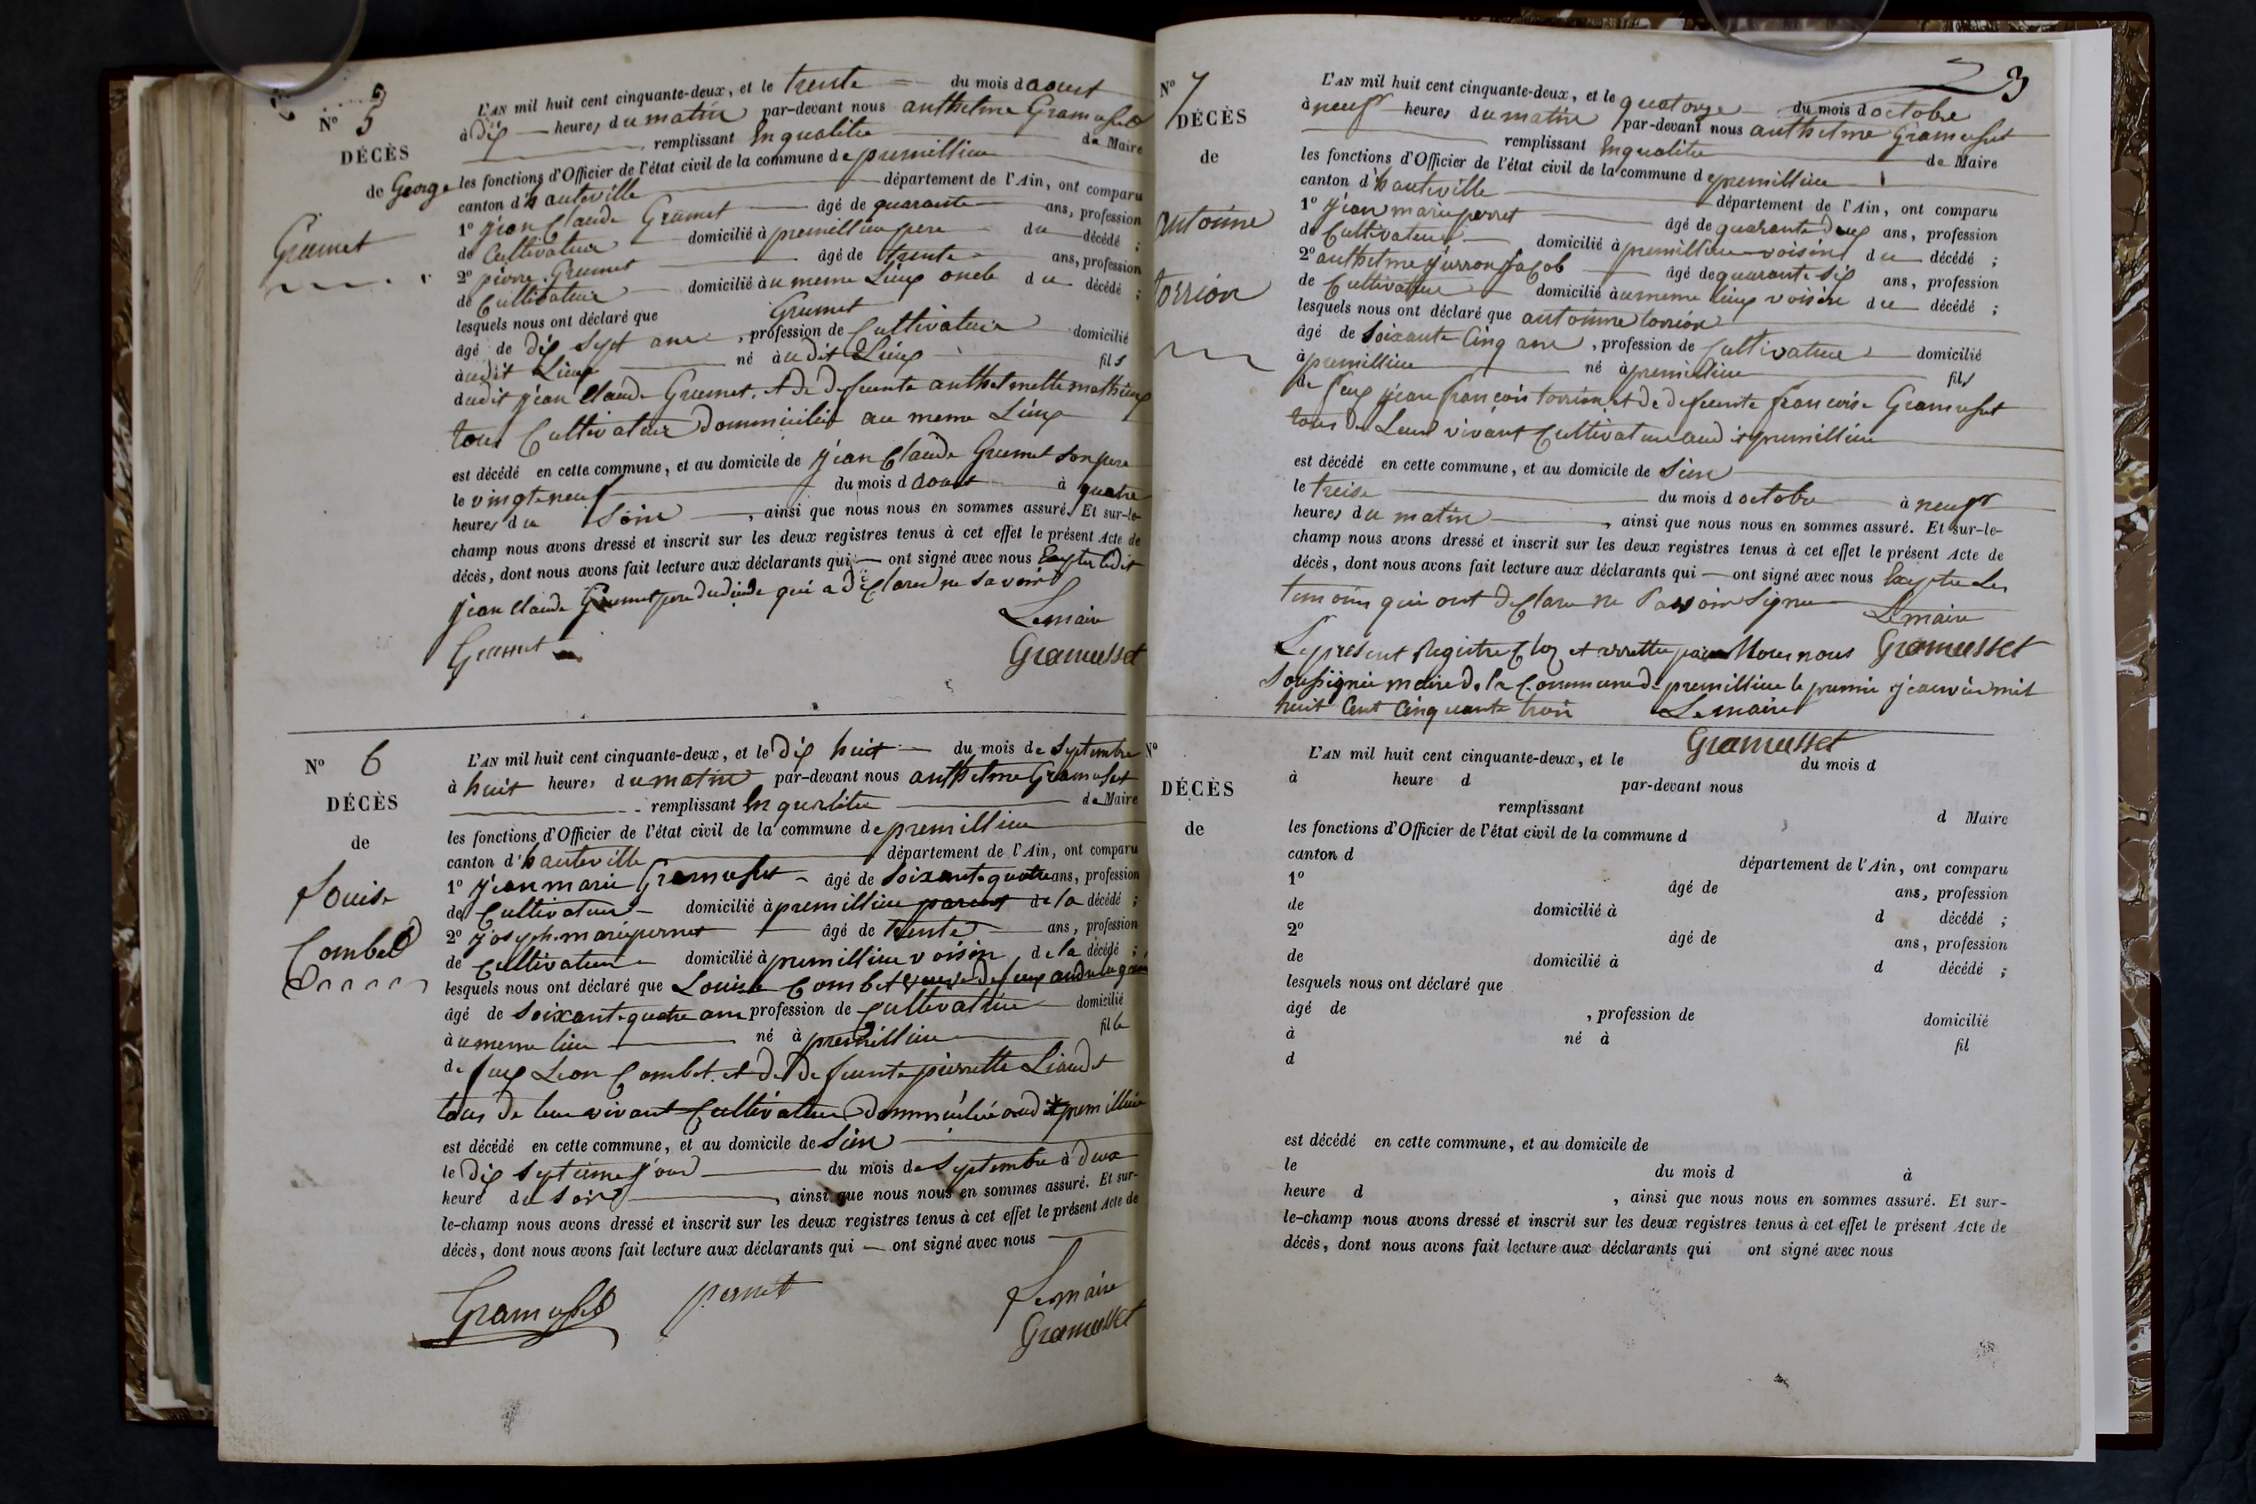 N° 5
DÉCÈS
de George
Grumet
L'AN mil huit cent cinquante-deux, et le trente du mois d aoust
à dix heures du matin par-devant nous anthelme Gramusset
remplissant En qualitée de Maire
les fonctions d'Officier de l'état civil de la commune de premillieu
canton d'hauteville département de l'Ain, ont comparu
1° jean Claude Grumet âgé de quarante ans, profession
de Cultivateur domicilié à premillieu pere du décédé ;
2° pierre Grumet âgé de trente ans, profession
de Cultivateur domicilié à u meme Lieux oncle du décédé ;
lesquels nous ont déclaré que Grumet
âgé de dix sept ans, profession de Cultivateur domicilié
audit Lieux né à udit Lieux fils
dudit jean Claude Grumet et de defeunte anthelmette mathieux
tous Cultivateur dommicilié au meme Lieux
est décédé en cette commune, et au domicile de jean Claude Grumet son pere
le vingt neuf du mois d aoust à quatre
heures du soire, ainsi que nous nous en sommes assuré. Et sur-le-
champ nous avons dressé et inscrit sur les deux registres tenus à cet effet le présent Acte de
décès, dont nous avons fait lecture aux déclarants qui ont signé avec nous Exepter ledit
jean Claude Grumet pere dudécédé qui a déClaré ne savoir
Le maire
Grumet Gramusset
N° 6
DÉCÈS
de
Louise
Combet
L'AN mil huit cent cinquante-deux, et le dix huit du mois de septembre
à huit heures du matin par-devant nous anthelme Gramusset
remplissant En qualitée de Maire
les fonctions d'Officier de l'état civil de la commune de premillieu
canton d'hauteville département de l'Ain, ont comparu
1° jean marie Gramusset âgé de soixante quatre ans, profession
de Cultivateur domicilié à premillieu parent de la décédé ;
2° joseph marie pernet âgé de trente ans, profession
de Cultivateur domicilié à premillieu voisin de la décédé ;
lesquels nous ont déclaré que Louise Combet veuve de feux
âgé de soixante quatre ans profession de Cultivatrice domicilié
à u meme lieu né à premillieu fille
de feux Leon Combet et de defeunte pierrette Liaudet
tous de leur vivant Cultivateur dommicilié audit premillieu
est décédé en cette commune, et au domicile de sien
le dix septieme jour du mois de septembre à deux
heure du soire, ainsi que nous nous en sommes assuré. Et sur-
le-champ nous avons dressé et inscrit sur les deux registres tenus à cet effet le présent Acte de
décès, dont nous avons fait lecture aux déclarants qui ont signé avec nous
Gramusset pernet Le maire
Gramusset
3
N° 7
DÉCÈS
de
antoinne
torrion
L'AN mil huit cent cinquante-deux, et le quatorze du mois d octobre
à neuf heures du matin par-devant nous anthelme Gramusset
remplissant En qualitée de Maire
les fonctions d'Officier de l'état civil de la commune de premillieu
canton d'hauteville département de l'Ain, ont comparu
1° jean marie perret âgé de quarante deux ans, profession
de Cultivateur domicilié à premillieu voisin du décédé ;
2° anthelme âgé de quarante six ans, profession
de Cultivateur domicilié à u meme lieux voisin du décédé ;
lesquels nous ont déclaré que antoinne torrion
âgé de soixante Cinq ans, profession de Cultivateur domicilié
à premillieu né à premillieu fils
de feux jean françois torrion et de defeunte françoise Gramusset
tous de Leur vivant Cultivateur audit premillieu
est décédé en cette commune, et au domicile de sien
le treise du mois d octobre à neuf
heures du matin, ainsi que nous nous en sommes assuré. Et sur-le-
champ nous avons dressé et inscrit sur les deux registres tenus à cet effet le présent Acte de
décès, dont nous avons fait lecture aux déclarants qui ont signé avec nous Exeptée Les
temoins qui ont déClaré ne savoir signer Le maire
Le présent Registre Cloz et arrettee par Nous nous Gramusset
soussignée maire de la Commune de premillieu le premier janvier mil
huit Cent Cinquante trois Le maire
Gramusset
N°
DÉCÈS
de
L'AN mil huit cent cinquante-deux, et le du mois d
à heure d par-devant nous
remplissant d Maire
les fonctions d'Officier de l'état civil de la commune d
canton d département de l'Ain, ont comparu
1° âgé de ans, profession
de domicilié à d décédé ;
2° âgé de ans, profession
de domicilié à d décédé ;
lesquels nous ont déclaré que
âgé de , profession de domicilié
à né à fil
d
est décédé en cette commune, et au domicile de
le du mois d à
heure d , ainsi que nous nous en sommes assuré. Et sur-
le-champ nous avons dressé et inscrit sur les deux registres tenus à cet effet le présent Acte de
décès, dont nous avons fait lecture aux déclarants qui ont signé avec nous